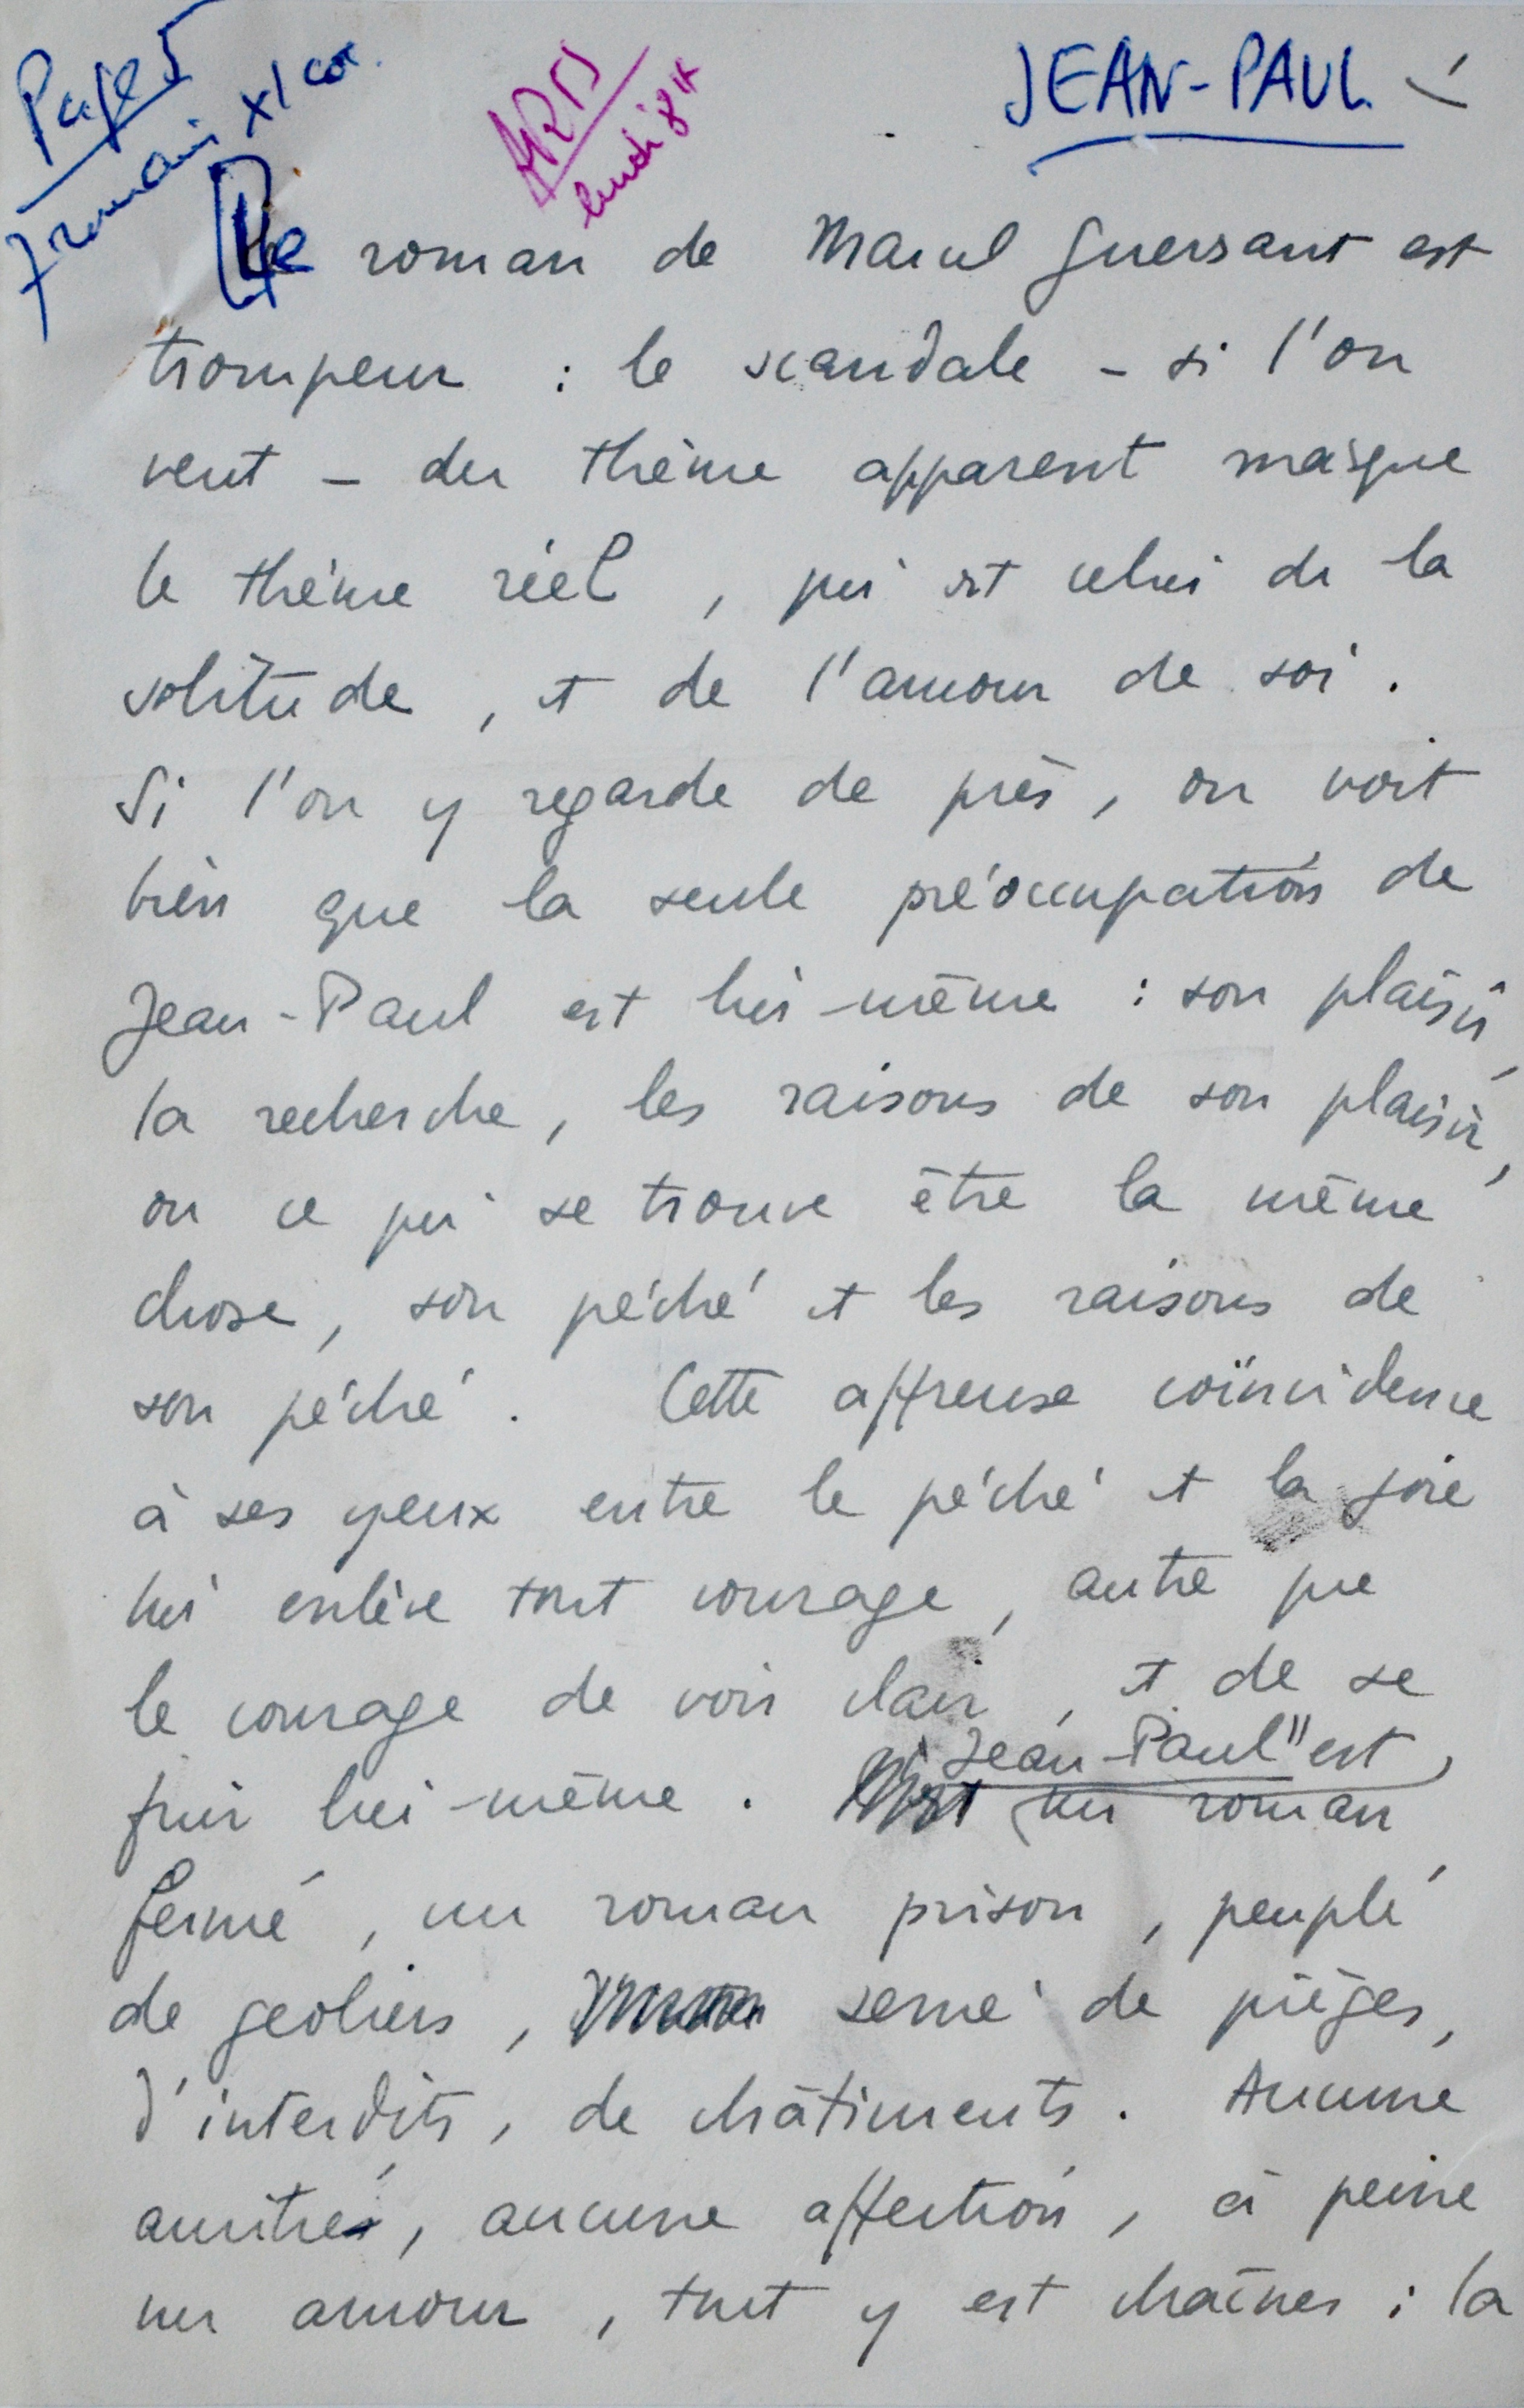 Page 5
romain x 1 col.
ARTS
lundi 8 H
JEAN-PAUL
Le roman de Marcel Guersant est
trompeur : le scandale - si l'on
veut - du thème apparent masque
le thème réel, qui est celui de la
solitude, et de l'amour de soi.
Si l'on y regarde de près, on voit
bien que la seule préoccupation de
Jean-Paul est lui-même : son plaisir,
la recherche, les raisons de son plaisir,
ou ce qui se trouve être la même
chose, son péché et les raisons de
son péché. Cette affreuse coïncidence
à ses yeux entre le péché et la joie
lui enlève tout courage, autre que
le courage de voir clair, et de se
fuir lui-même. "Jean-Paul" est
un roman
fermé, un roman prison, peuplé
de geoliers, semé de pièges,
d'interdits, de châtiments. Aucune
amitié, aucune affection, à peine
un amour, tout y est chaînes ; la